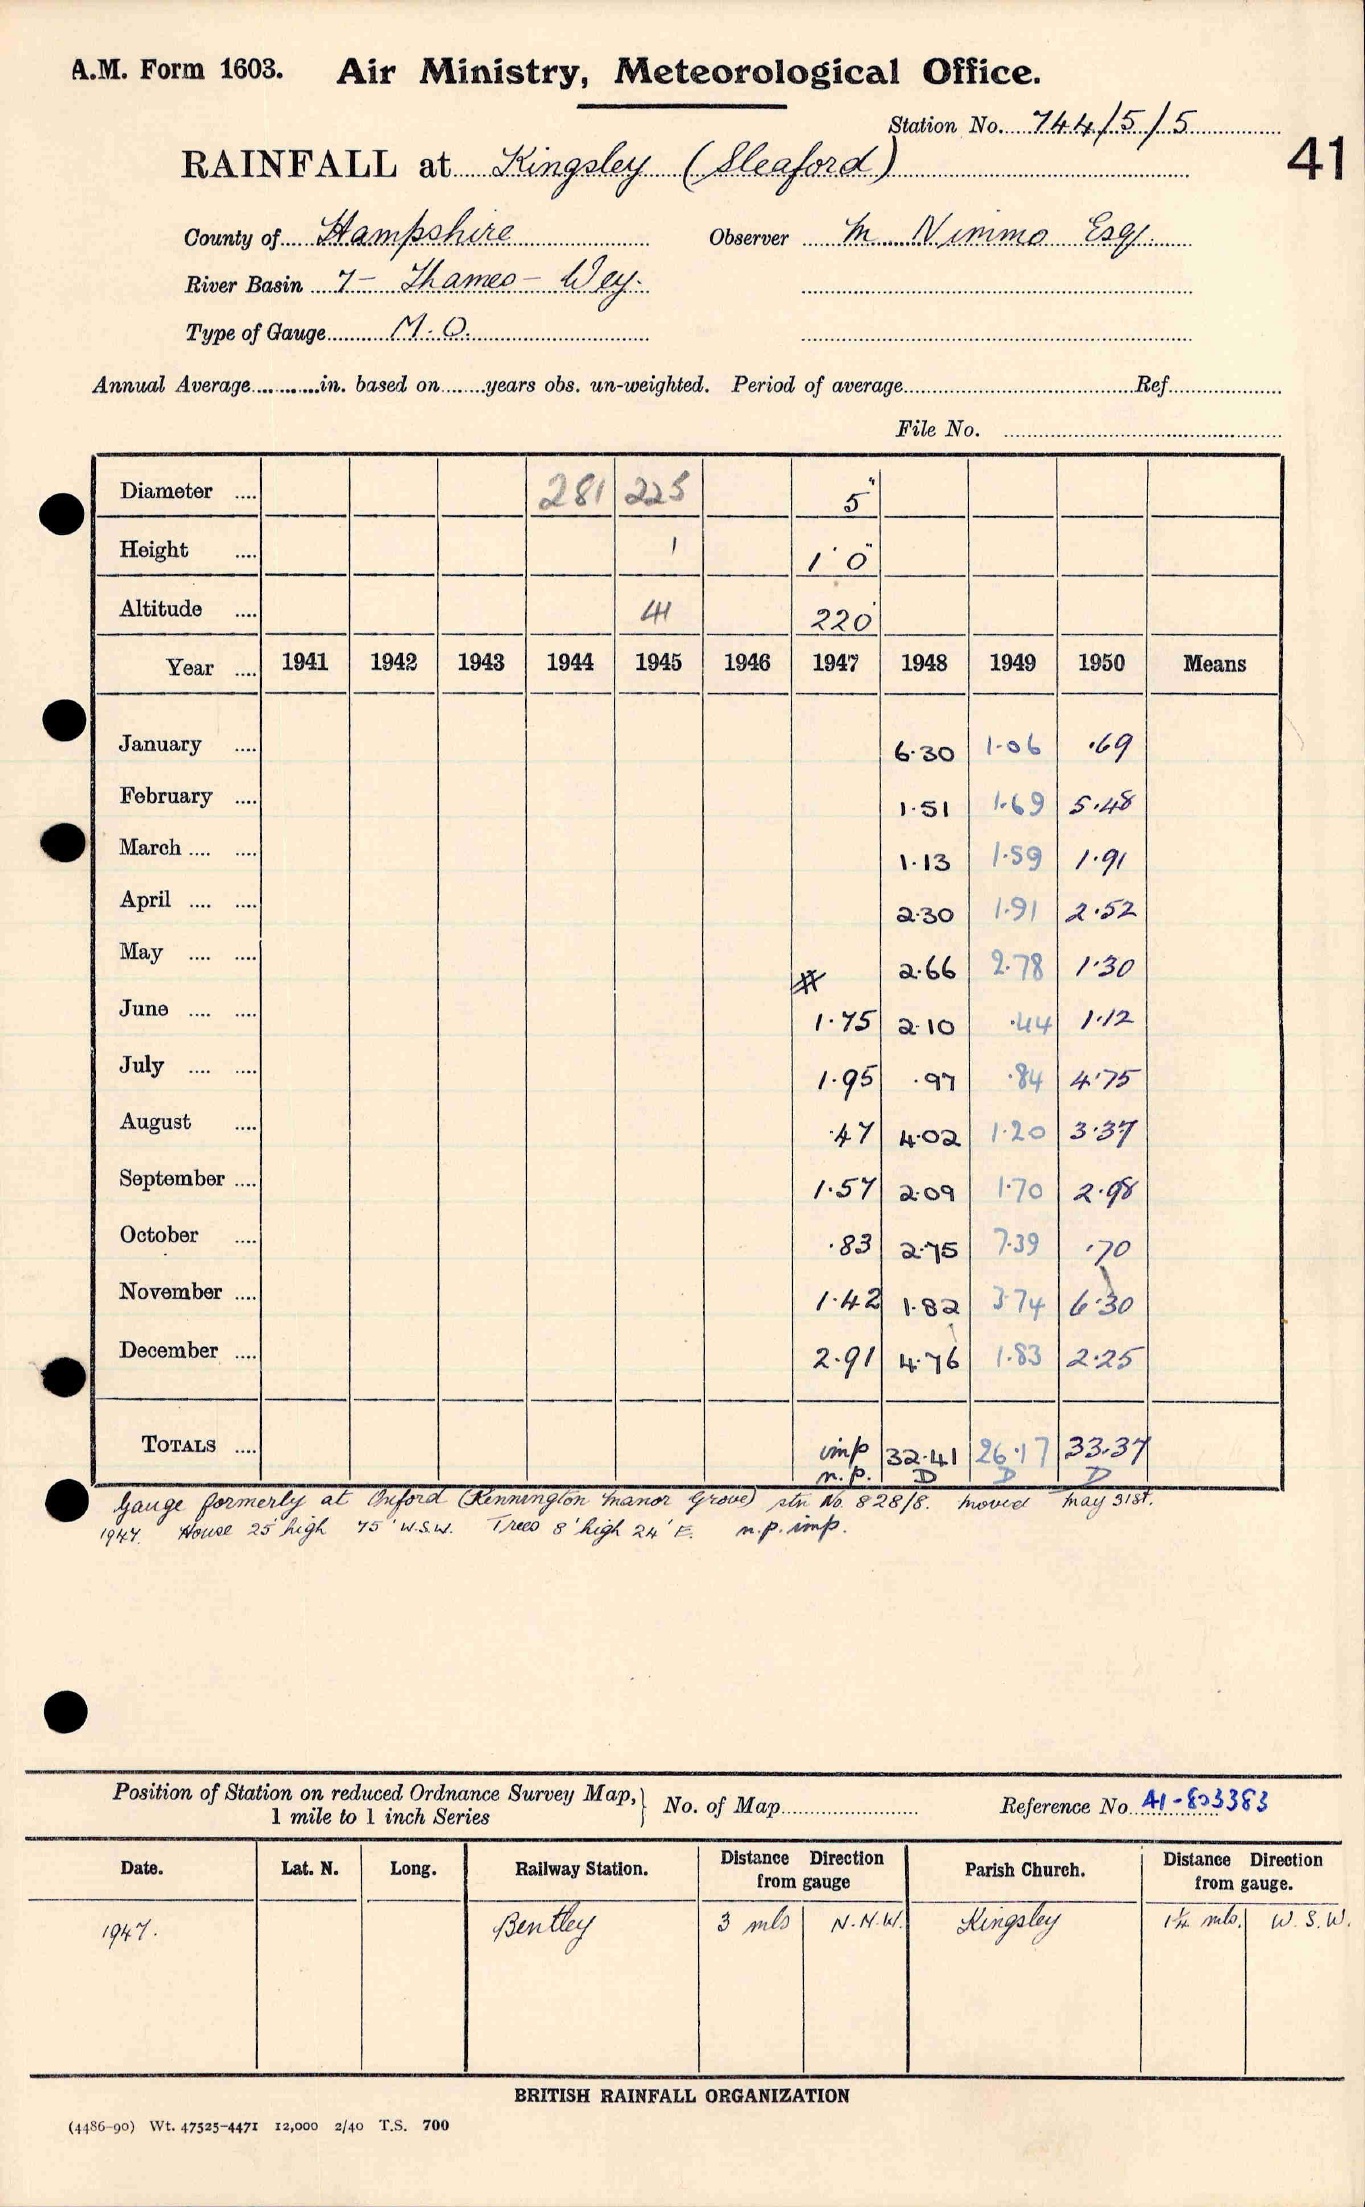 A.M. Form 1603. Air Ministry, Meteorological Office.
Station No. 744/5/5
41
RAINFALL at Kingsley (Sleaford)
County of Hampshire Observer M Nimmo Esq.
River Basin 7 - Thames - Wey.
Type of Gauge M.O.
Annual Average in. based on years obs. un-weighted. Period of average Ref
File No.
Diameter .... 281 225 5"
Height .... 1 1' 0"
Altitude .... 41 220'
Year .... 1941 1942 1943 1944 1945 1946 1947 1948 1949 1950 Means
January .... 6.30 1.06 .69
February .... 1.51 1.69 5.48
March .... .... 1.13 1.59 1.91
April .... .... 2.30 1.91 2.52
May .... .... 2.66 2.78 1.30
June .... .... 1.75 2.10 .44 1.12
July .... .... 1.95 .97 .84 4.75
August .... .47 4.02 1.20 3.37
September .... 1.57 2.09 1.70 2.98
October .... .83 2.75 7.39 .70
November .... 1.42 1.82 3.74 6.30
December .... 2.91 4.76 1.83 2.25
TOTALS .... imp 32.41 26.17 33.37
n.p. D D D
Gauge formerly at Oxford (Kennington Manor Grove) stn No. 828/8. moved May 31st.
1947. House 25' high 75' W.S.W. Trees 8' high 24' E. n.p. imp.
Position of Station on reduced Ordnance Survey Map, 1 mile to 1 inch Series } No. of Map Reference No. 41-803383
Date. Lat. N. Long. Railway Station. Distance Direction from gauge Parish Church. Distance Direction from gauge.
1947. Bentley 3 mls N.N.W. Kingsley 1¼ mls. W.S.W.
BRITISH RAINFALL ORGANIZATION
(4486-90) Wt. 47525-4471 12,000 2/40 T.S. 700